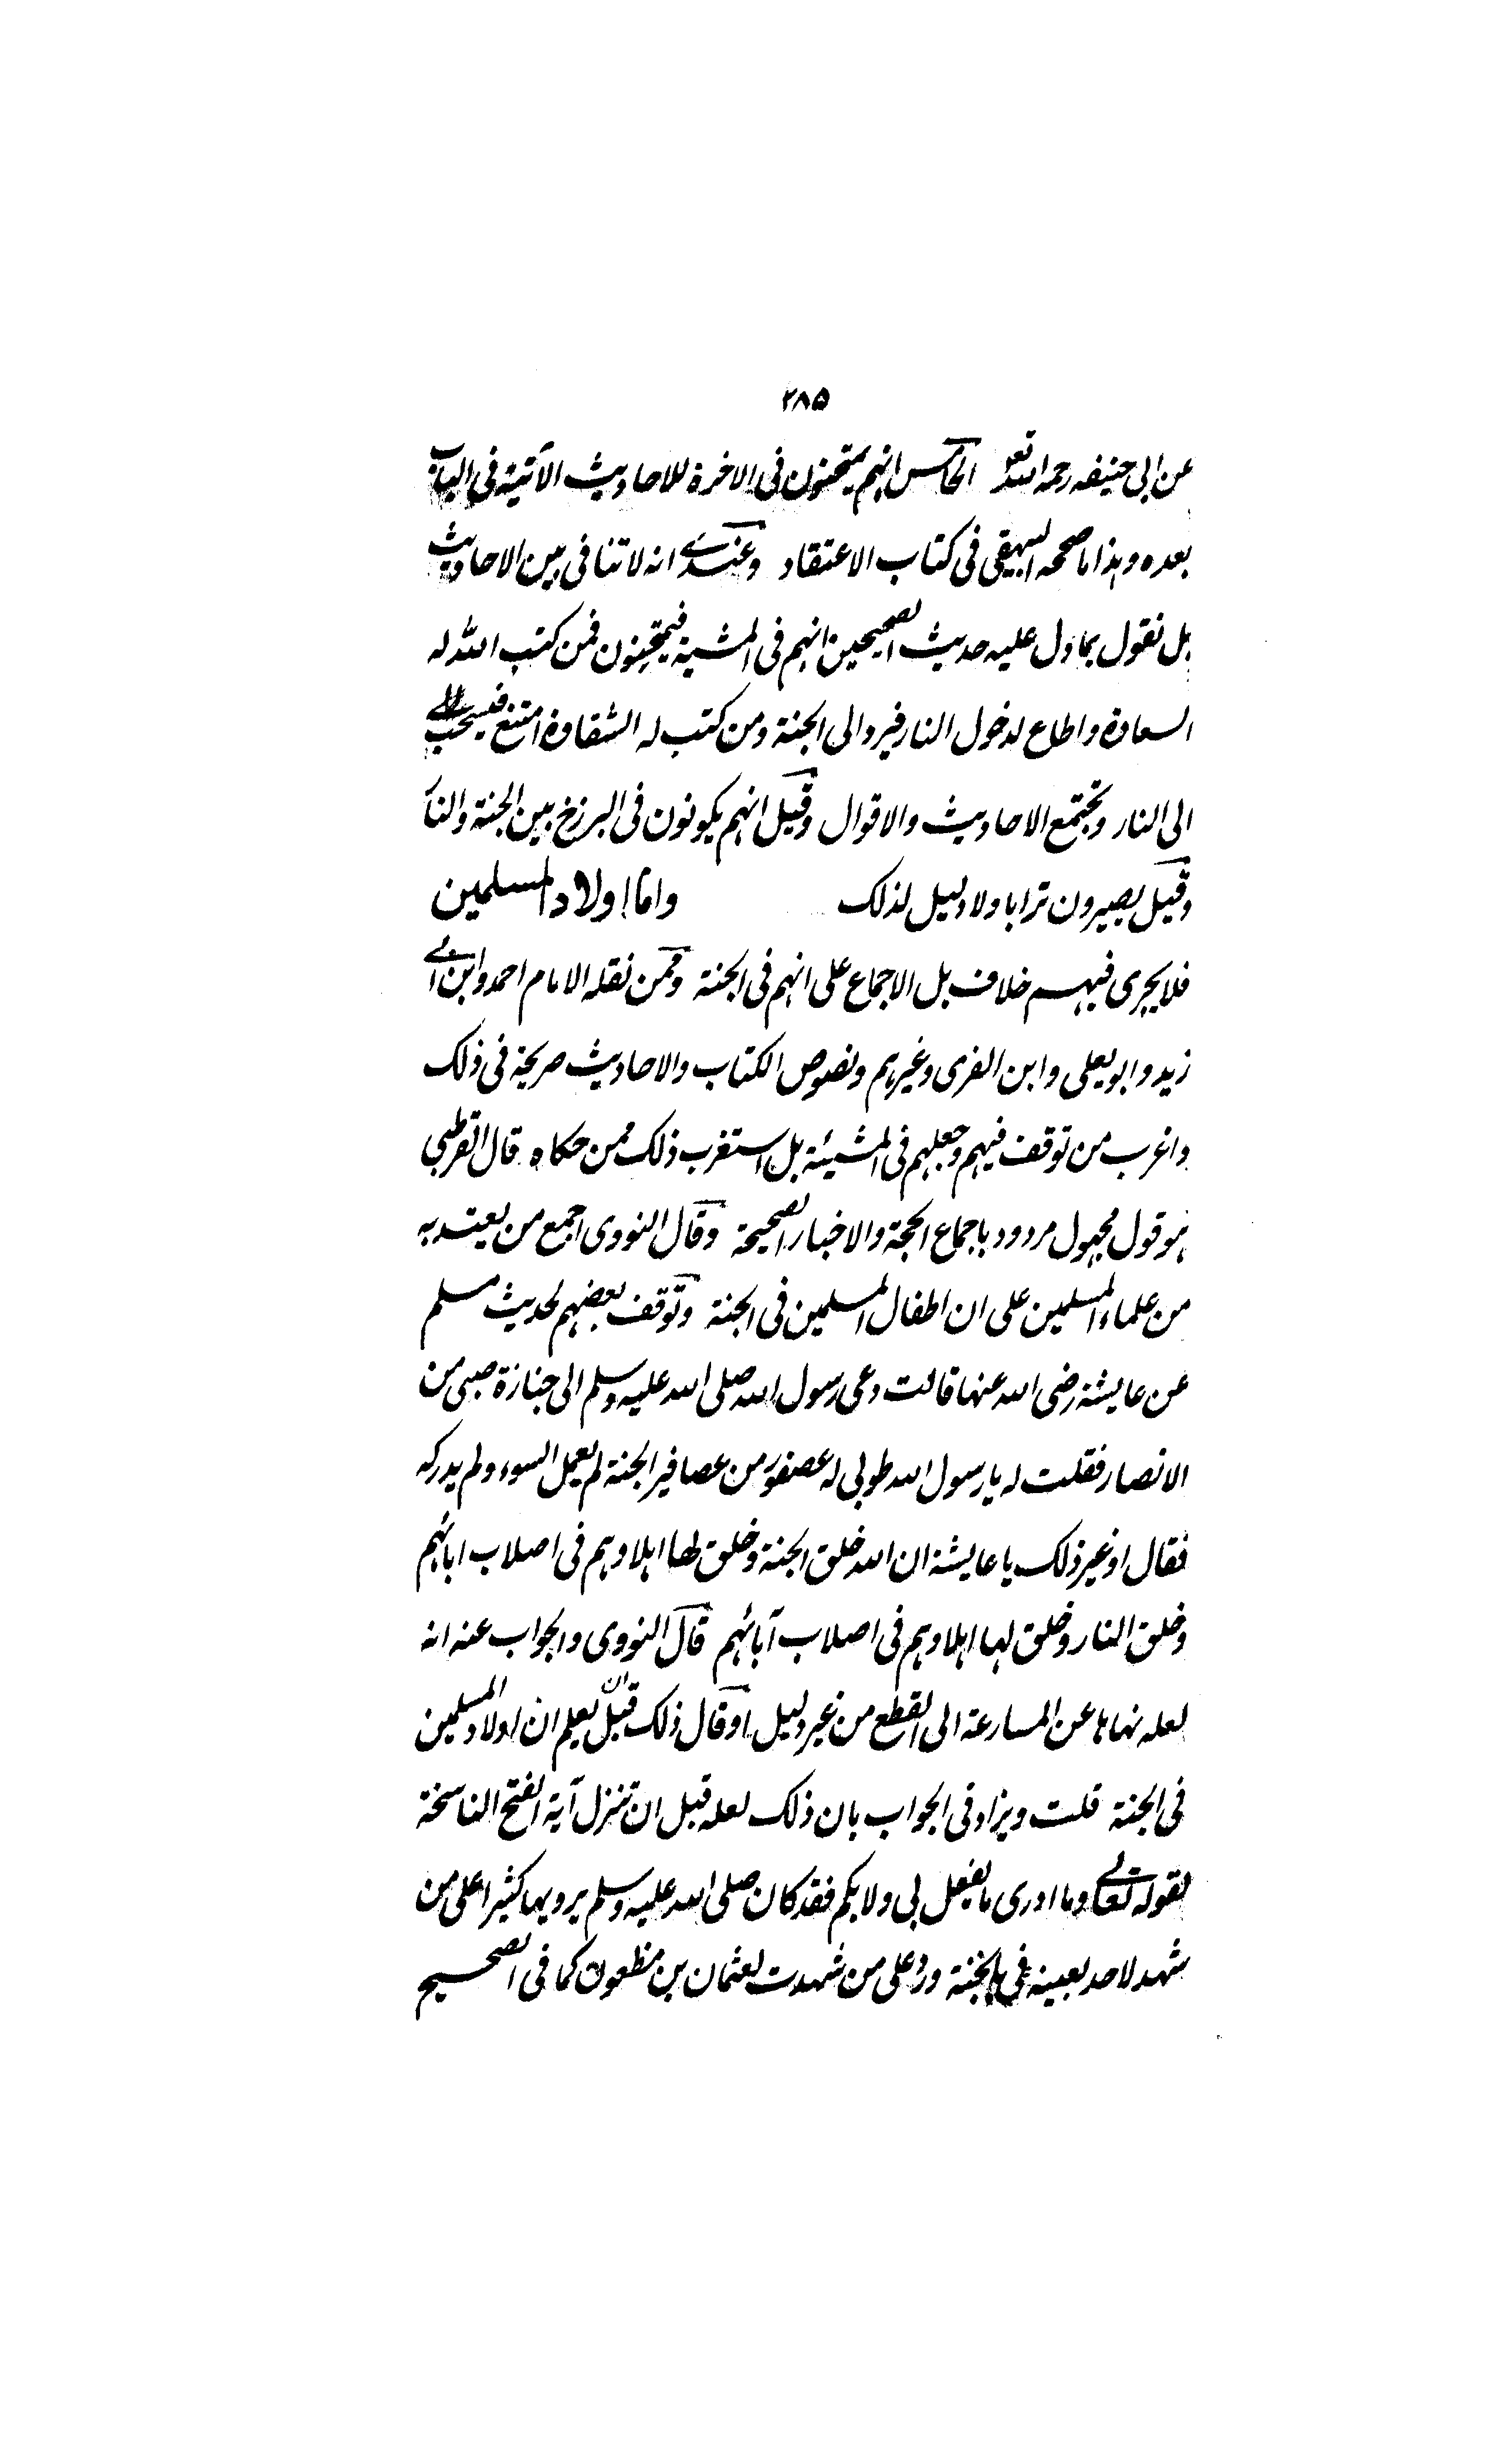 ٢٨٥
عن ابی حنیفه رحمه الله تعو الخامس انهم یمتحنون فی الاخرة للاحادیث الآتیة فی الباب
بعده وهذا ما صححه البیهقی فی کتاب الاعتقاد وعندی انه لا تنافی بین الاحادیث
بل نقول بما دل علیه حدیث الصحیحین انهم فی المشیة فیمتحنون فمن کتب الله له
السعادة واطاع لدخول النار فیرد الی الجنة ومن کتب له الشقاوة امتنع فیسحب
الی النار وتجتمع الاحادیث والاقوال وقیل انهم یکونون فی البرزخ بین الجنة والنا
وقیل یصیرون ترابا ولا دلیل لذلک واما اولاد المسلمین
فلا یجری فیهم خلاف بل الاجماع علی انهم فی الجنة وممن نقله الامام احمد وابن ابی
زید وابو یعلی وابن الفری وغیرهم ونصوص الکتاب والاحادیث صریحة فی ذلک
واغرب من توقف فیهم وجعلهم فی المشیئة بل استغرب ذلک ممن حکاه قال القرطبی
هو قول مجهول مردود باجماع الحجة والاخبار الصحیحة وقال النووی اجمع من یعتد به
من علماء المسلمین علی ان اطفال المسلمین فی الجنة وتوقف بعضهم لحدیث مسلم
عن عایشة رضی الله عنها قالت دعی رسول الله صلی الله علیه وسلم الی جنازة صبی من
الانصار فقلت له یا رسول الله طوبی له عصفور من عصافیر الجنة لم یعمل السوء ولم یدرکه
فقال او غیر ذلک یا عایشة ان الله خلق الجنة وخلق لها اهلا وهم فی اصلاب ابائهم
وخلق النار وخلق لها اهلا وهم فی اصلاب آبائهم قال النووی والجواب عنه انه
لعله نهاها عن المسارعة الی القطع من غیر دلیل او قال ذلک قبل ان یعلم ان اولاد المسلمین
فی الجنة قلت ویزاد فی الجواب بان ذلک لعله قبل ان تنزل آیة الفتح الناسخة
لقوله تعالی وما ادری ما یفعل بی ولا بکم فقد کان صلی الله علیه وسلم یرویها کثیرا علی من
شهد لاحد بعینه فی بالجنة ورد علی من شهدت لعثمان بن مظعون کما فی الصحیح